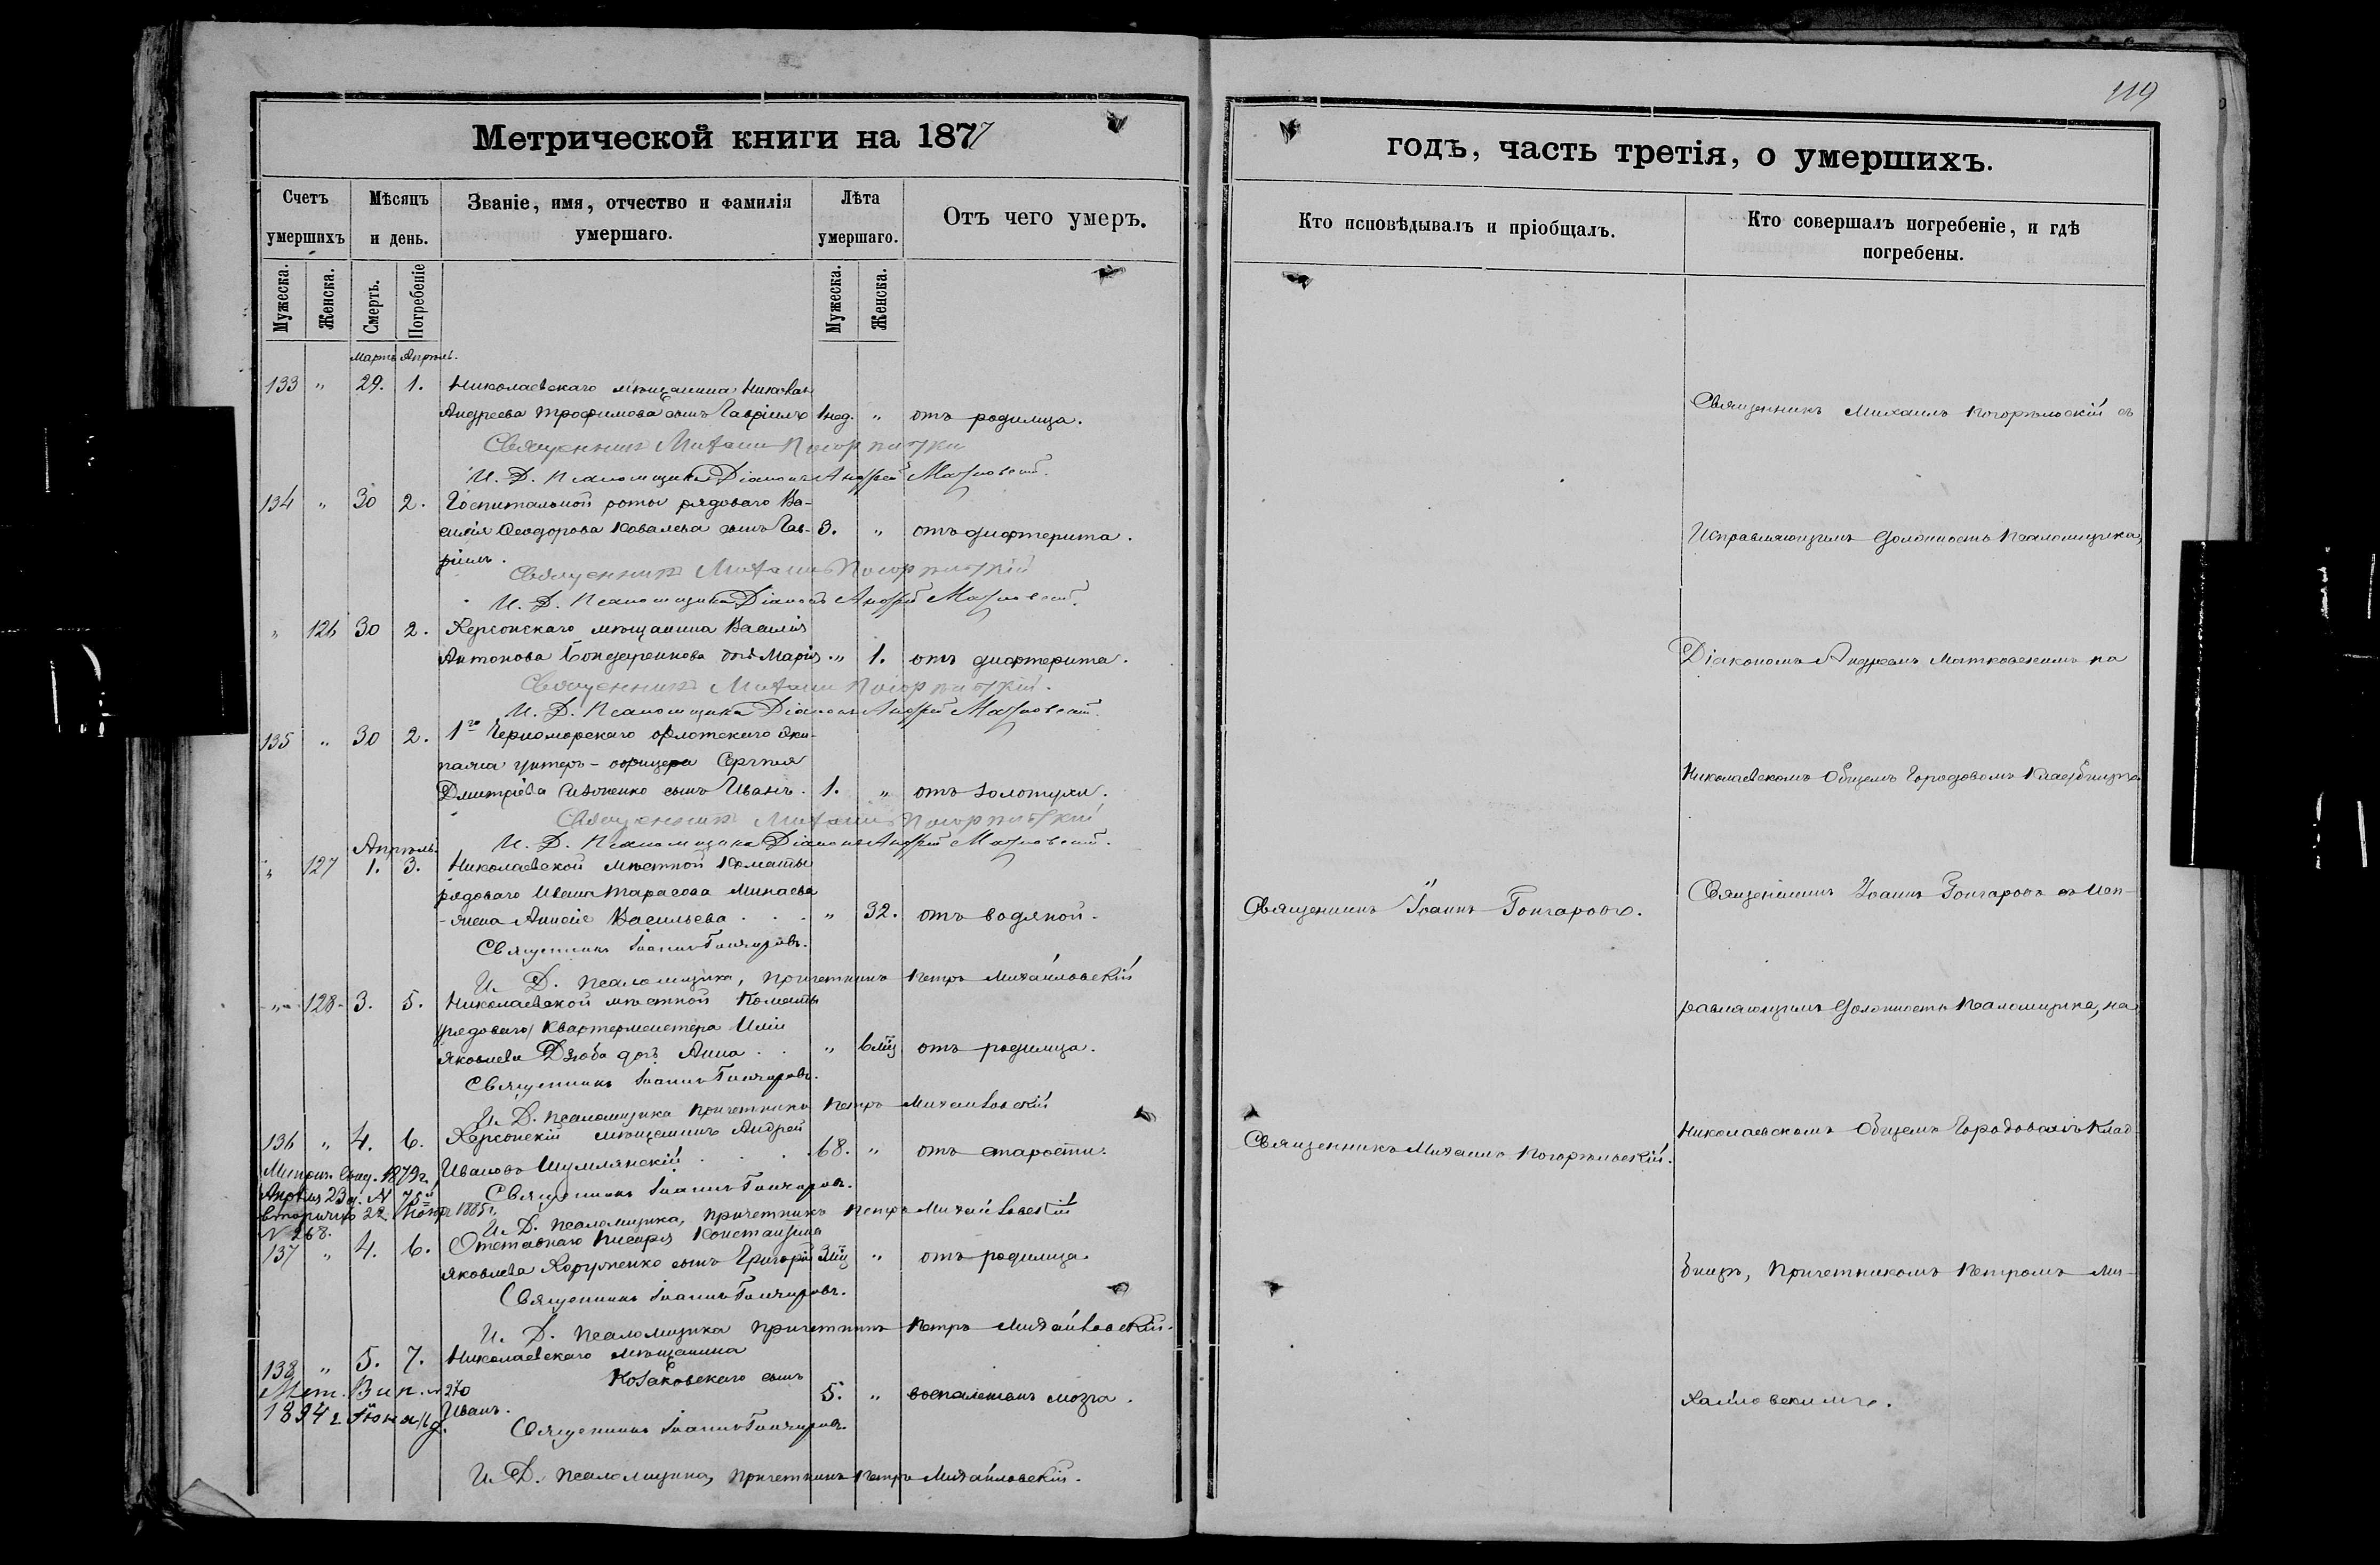 119
Метрической книги на 1877
годъ, часть третія, о умершихъ.
Счетъ умершихъ
Мѣсяцъ и день.
Званіе, имя, отчество и фамилія умершаго.
Лѣта умершаго.
Отъ чего умеръ.
Кто исповѣдывалъ и пріобщалъ.
Кто совершалъ погребеніе, и гдѣ погребены.
Мужеска.
Женска.
Смерть.
Погребеніе
Мужеска.
Женска.
Мартъ Апрѣль.
133 " 29. 1. Николаевскаго мѣщанина Николая
Андреева Трофимова сынъ Гавріилъ 1 нед. " отъ родимца.
Священникъ Михаилъ Погорѣльскій
И. Д. Псаломщика Діаконъ Андрей Матковскій.
134 " 30 2. Госпитальной роты рядоваго Ва-
силія Ѳеодорова Ковалева сынъ Гав- 3. " отъ дифтерита.
ріилъ.
Священникъ Михаилъ Погорѣльскій
И. Д. Псаломщика Діаконъ Андрей Матковскій.
" 126 30 2. Херсонскаго мѣщанина Василія
Антонова Бондаренкова дочь Марія " 1. отъ дифтерита.
Священникъ Михаилъ Погорѣльскій.
И. Д. Псаломщика Діаконъ Андрей Матковскій.
135 " 30 2. 1го Черноморскаго флотскаго эки-
пажа унтеръ-офицера Сергѣя
Дмитріева сынъ Иванъ. 1. " отъ золотухи.
Священникъ Михаилъ Погорѣльскій
И. Д. Псаломщика Діаконъ Андрей Матковскій.
Апрѣль.
" 127 1. 3. Николаевской мѣстной Команды
рядоваго Ивана Тарасова Минаева
жена Васильева . . . " 32. отъ водяной.
Священникъ Іоаннъ Гончаровъ.
И. Д. Псаломщика, Причетникъ Петръ Михайловскій
" 128 3. 5. Николаевской мѣстной Команды
рядоваго Квартермистера Иліи
Яковлева Дзюба дочь Анна . . " 6 мѣц отъ родимца.
Священникъ Іоаннъ Гончаровъ.
И. Д. Псаломщика Причетникъ Петръ Михайловскій
136 " 4. 6. Херсонскій мѣщанинъ Андрей
Ивановъ Шумлянскій . . . 68. " отъ старости.
1879 г.
Апрѣля 23 д. N 75
вторично 22 1885 г.
N 268.
Священникъ Іоаннъ Гончаровъ.
И. Д. Псаломщика, Причетникъ Петръ Михайловскій
137 " 4. 6. Отставнаго Писаря Константина
Яковлева Коруженко сынъ Григорій 3 мѣц " отъ родимца.
Священникъ Іоаннъ Гончаровъ.
И. Д. Псаломщика Причетникъ Петръ Михайловскій.
138 " 5. 7. Николаевскаго мѣщанина
Козаковскаго сынъ
Иванъ. 5. " воспаленіемъ мозга.
Мет. Вып. N 270
1894 г. Іюня 16 д.
Священникъ Іоаннъ Гончаровъ.
И. Д. Псаломщика, Причетникъ Петръ Михайловскій.
Священникъ Іоаннъ Гончаровъ.
Священникъ Михаилъ Погорѣльскій.
Священникъ Михаилъ Погорѣльскій съ
Исправляющимъ должность Псаломщика,
Діакономъ Андреемъ Матковскимъ на
Николаевскомъ Общемъ Городовомъ Кладбищѣ.
Священникъ Іоаннъ Гончаровъ съ Исп-
равляющимъ должность Псаломщика, на
Николаевскомъ Общемъ Городовомъ Клад-
бищѣ, Причетникомъ Петромъ Ми-
хайловскимъ.